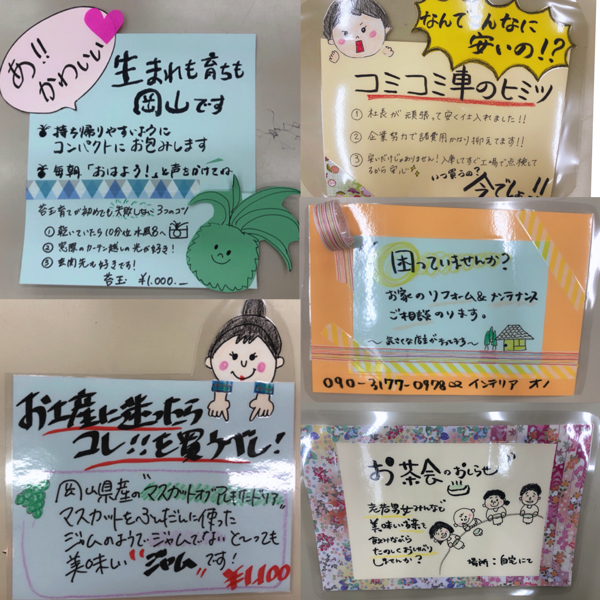 あ!!
かわいい
生まれも育ちも
岡山です
持ち帰りやすいように
コンパクトにお包みします
毎朝「おはよう!」と声をかけてね
苔玉育てが初めても失敗しない3つのコツ
① 乾いていたら10分位水風呂へ
② 窓際のカーテン越しの光が好き!
③ 玄関先も好きです!
苔玉 ¥1,000.—
なんでこんなに
安いの!?
コミコミ車のヒミツ
① 社長が頑張って安く仕入れました!!
② 企業努力で諸費用かなり抑えてます!!
③ 安いだけじゃありません!入庫してすぐ工場で点検して
るから安心
いつ買うの?
今でしょ!!
困っていませんか?
お家のリフォーム&メンテナンス
ご相談のります。
〜気さくな店主がチャチャチャです〜
090-3177-0978 インテリア オノ
お土産に迷ったら
コレ!!を買うべし!
岡山県産の"マスカットオブアレキサンドリア"
マスカットをふんだんに使った
ジャムのようでジャムでないとっても
美味しい"ジャム"です!
¥1100
お茶会のおしらせ
老若男女みんなで
美味いお茶で
あけながら
たのしくおしゃべり
しませんか?
場所:自宅にて